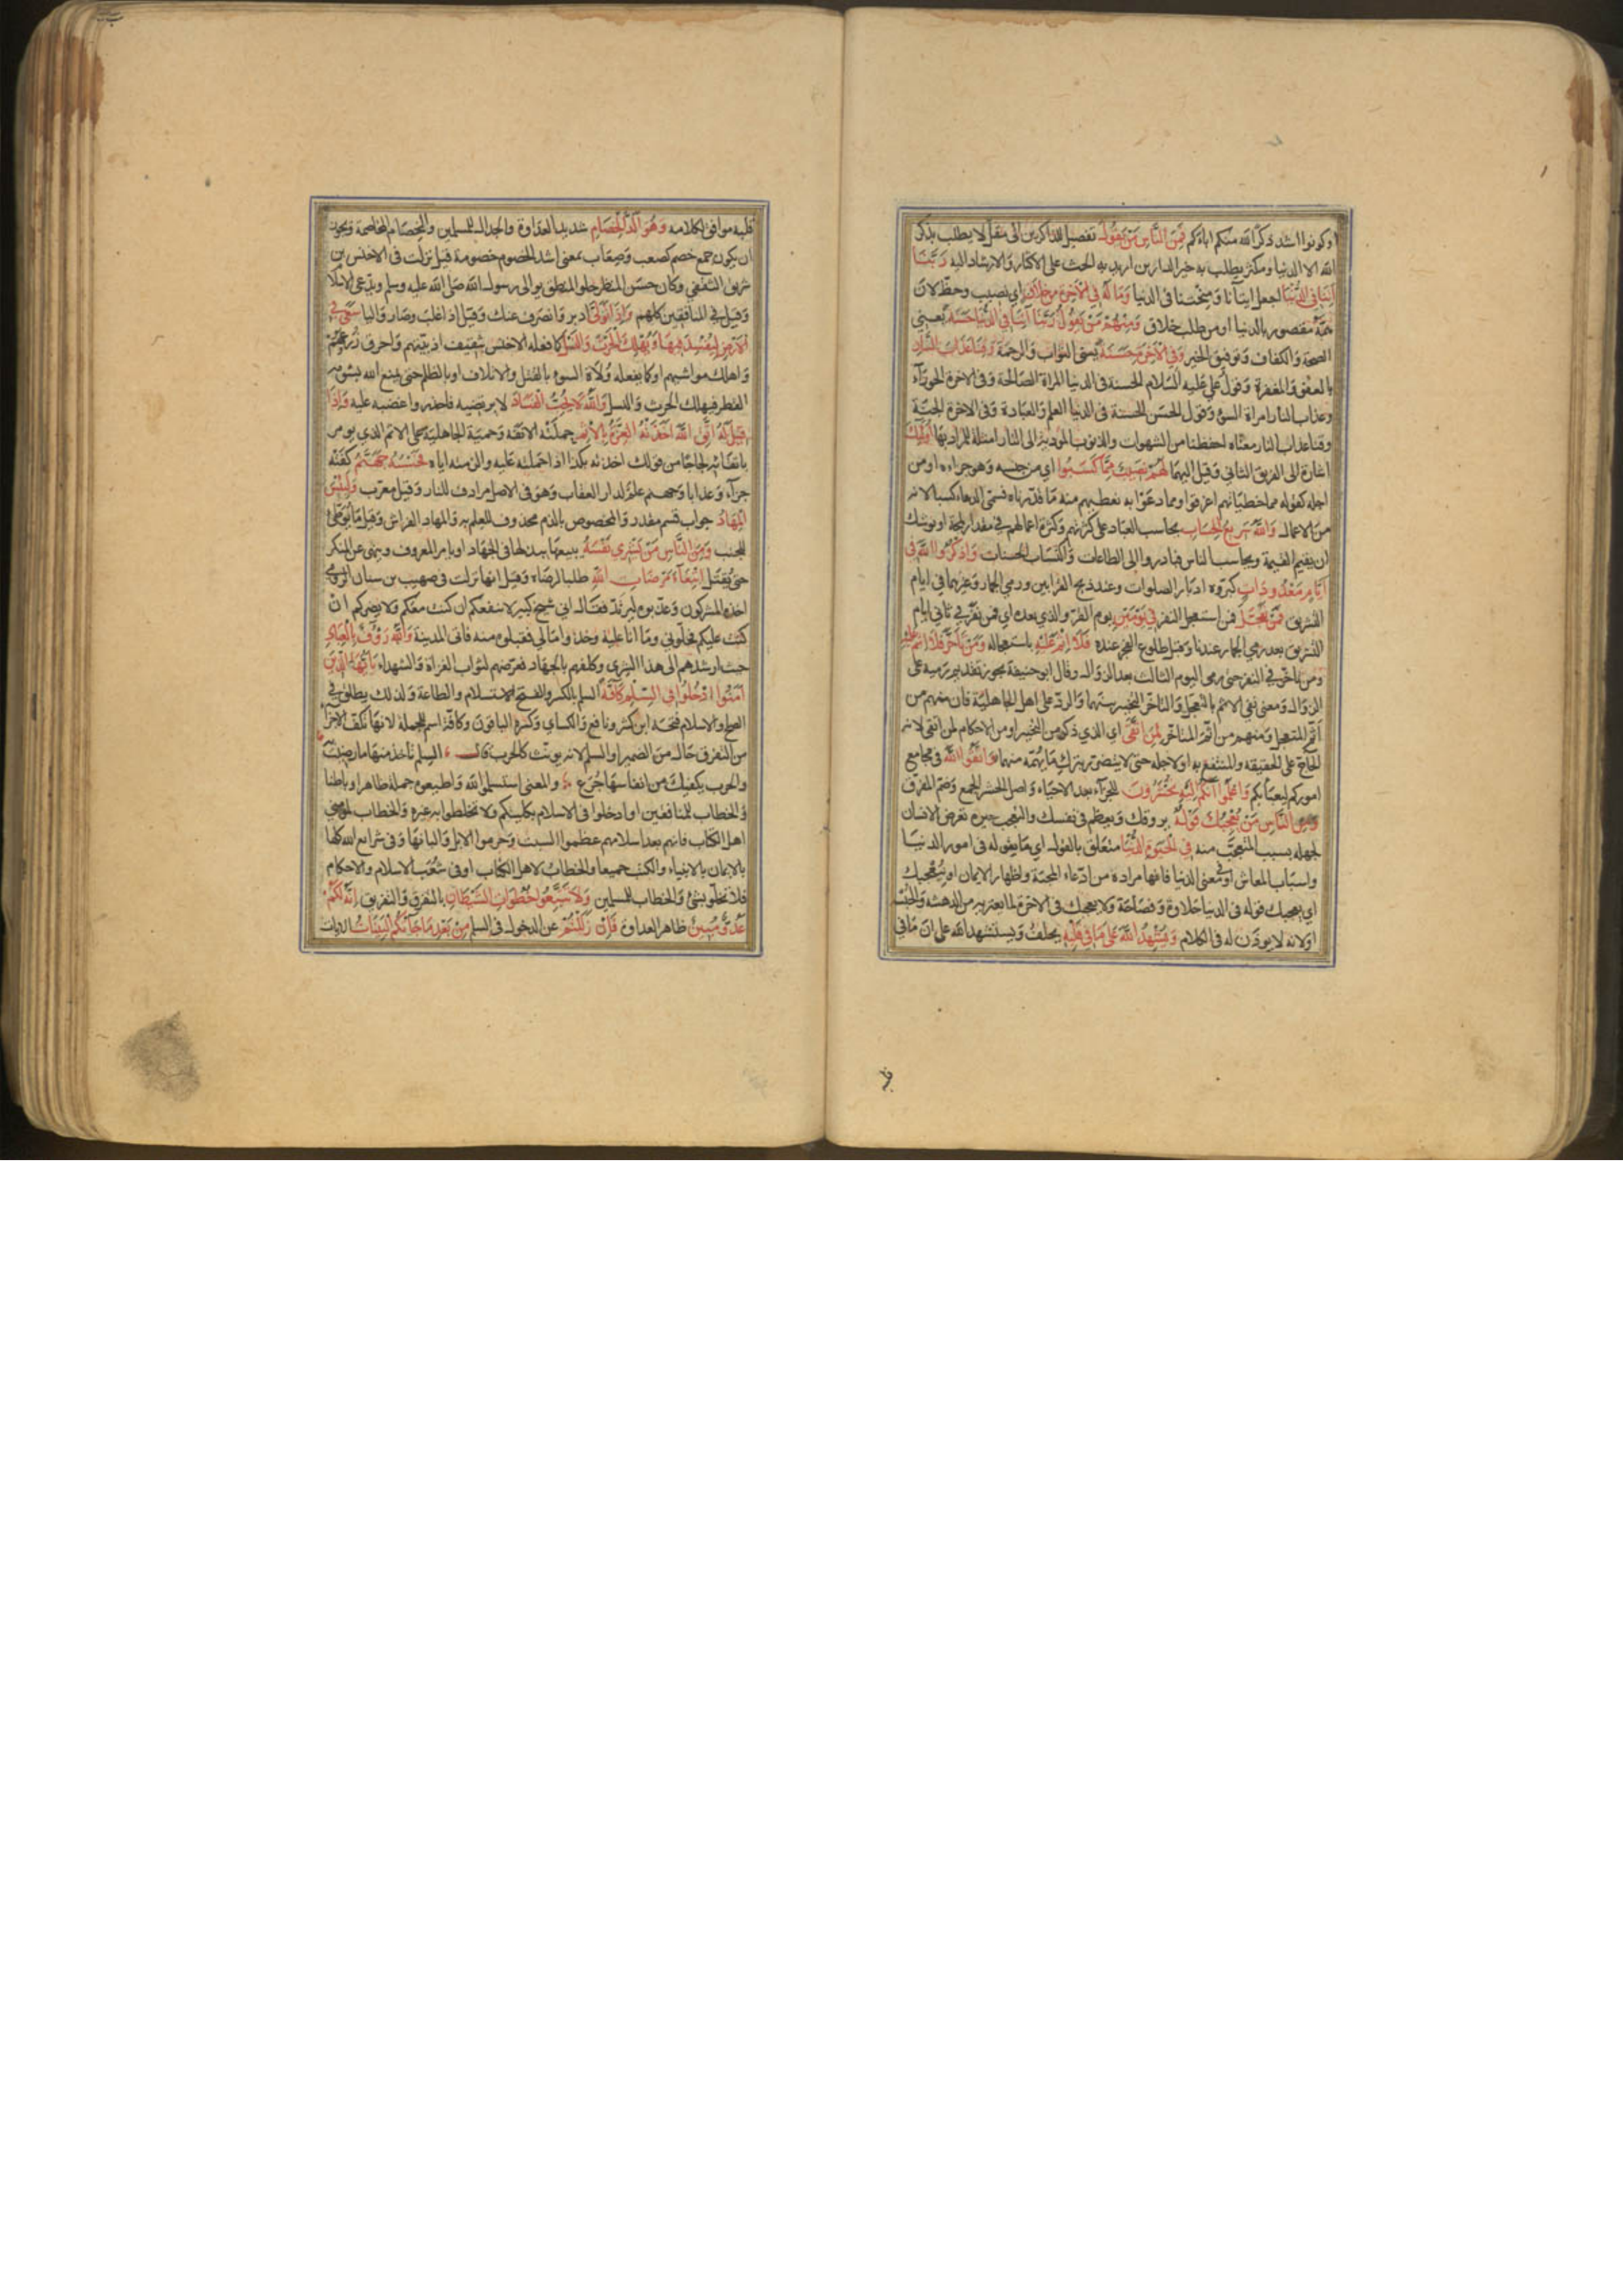 او كونوا اشد ذكرا لله منكم لابائكم فمن الناس من يقول تفصيل للذاكرين الى مقل لا يطلب بذكر
الله الا الدنيا ومكثر يطلب به خير الدارين اريد به الحث على الاكثار والارشاد اليه ربنا
اتنا في الدنيا اجعل ايتانا ومنحتنا في الدنيا وما له في الاخرة من خلاق اي نصيب وحظ لان
همه مقصور بالدنيا او من طلب خلاق ومنهم من يقول ربنا آتنا في الدنيا حسنة يعني
الصحة والكفاف وتوفيق الخير وفي الاخرة حسنة يعني الثواب والرحمة وقنا عذاب النار
بالعفو والمغفرة وقول علي عليه السلام الحسنة في الدنيا المراة الصالحة وفي الاخرة الحوراء
وعذاب النار امراة السوء وقول الحسن الحسنة في الدنيا العلم والعبادة وفي الاخرة الجنة
وقنا عذاب النار معناه احفظنا من الشهوات والذنوب المودية الى النار امثلة للمراد بها اولئك
اشارة الى الفريق الثاني وقيل اليهما لهم نصيب مما كسبوا اي من جنسه وهو جزاءه او من
اجله كقوله مما خطياتهم اغرقوا او مما دعوا به نعطيهم منه ما قدرناه فسمى الدعاء كسبا لانه
من الاعمال والله سريع الحساب يحاسب العباد على كثرتهم وكثرة اعمالهم في مقدار لمحة او يوشك
ان يقيم القيمة ويحاسب الناس فبادروا الى الطاعات واكتساب الحسنات واذكروا الله في
ايام معدودات كبروه ادبار الصلوات وعند ذبح القرابين ورمي الجمار وغيرها في ايام
التشريق فمن تعجل فمن استعجل النفر في يومين يوم القر والذي بعده اي فمن نفر في ثاني ايام
التشريق بعد رمي الجمار عندنا وقبل طلوع الفجر عنده فلا اثم عليه باستعجاله ومن تاخر فلا اثم عليه
ومن تاخر في النفر حتى رمى اليوم الثالث بعد الزوال وقال ابو حنيفة يجوز تقديم رميه على
الزوال ومعنى نفي الاثم بالتعجل والتاخر التخيير بينهما والرد على اهل الجاهلية فان منهم من
اثم المتعجل ومنهم من اثم المتاخر لمن اتقى اي الذي ذكر من التخيير او من الاحكام لمن اتقى لانه
الحاج على الحقيقة والمنتفع به او لاجله حتى لا يتضرر بترك ما يهمه منهما واتقوا الله في مجامع
اموركم ليعبأ بكم واعلموا انكم اليه تحشرون للجزآء بعد الاحياء واصل الحشر الجمع وضم المتفرق
ومن الناس من يعجبك قوله يروقك ويعظم في نفسك والتعجب حيرة تعرض الانسان
لجهله بسبب المتعجب منه في الحيوة الدنيا متعلق بالقول اي ما يقوله في امور الدنيا
واسباب المعاش او في معنى الدنيا فانها مراده من ادعاء المحبة واظهار الايمان او يعجبك
اي يعجبك قوله في الدنيا حلاوة وفصاحة ولا يعجبك في الاخرة لما يعتريه من الدهشة والحبسة
او لانه لا يوذن له في الكلام ويشهد الله على ما في قلبه يحلف ويستشهد الله على ان ما في
قلبه
قلبه موافق لكلامه وهو الد الخصام شديد العداوة والجدال للمسلمين والخصام المخاصمة ويجوز
ان يكون جمع خصم كصعب وصعاب بمعنى اشد الخصوم خصومة قيل نزلت في الاخنس بن
شريق الثقفي وكان حسن المنظر حلو المنطق يوالي رسول الله صلى الله عليه وسلم ويدعي الاسلام
وقيل في المنافقين كلهم واذا تولى ادبر وانصرف عنك وقيل اذا غلب وصار واليا سعى في
الارض ليفسد فيها ويهلك الحرث والنسل كما فعله الاخنس بثقيف اذ بيتهم واحرق زروعهم
واهلك مواشيهم او كما يفعله ولاة السوء بالقتل والاتلاف او بالظلم حتى يمنع الله بشومه
القطر فيهلك الحرث والنسل والله لا يحب الفساد لا يرتضيه فاحذروا غضبه عليه واذا
قيل له اتق الله اخذته العزة بالاثم حملته الانفة وحمية الجاهلية على الاثم الذي يومر
باتقائه لجاجا من قولك اخذته بكذا اذا حملته عليه والزمته اياه فحسبه جهنم كفته
جزآء وعذابا وجهنم علم لدار العقاب وهو في الاصل مرادف للنار وقيل معرب ولبئس
المهاد جواب قسم مقدر والمخصوص بالذم محذوف للعلم به والمهاد الفراش وقيل ما يوطئ
للجنب ومن الناس من يشري نفسه يبيعها ببذلها في الجهاد او يامر بالمعروف وينهى عن المنكر
حتى يقتل ابتغاء مرضات الله طلبا لرضاه وقيل انها نزلت في صهيب بن سنان الرومي
اخذه المشركون وعذبوه ليرتد فقال اني شيخ كبير لا ينفعكم ان كنت معكم ولا يضركم ان
كنت عليكم فخلوني وما انا عليه وخذوا مالي فقبلوه منه فاتى المدينة والله رؤف بالعباد
حيث ارشدهم الى هذا الشرى وكلفهم بالجهاد فعرضهم لثواب الغزاة والشهداء يا ايها الذين
امنوا ادخلوا في السلم كافة السلم بالكسر والفتح الاستسلام والطاعة ولذلك يطلق في
الصلح والاسلام فتحه ابن كثير ونافع والكساي وكسره الباقون وكافة اسم للجملة لانها تكف الاجزآء
من التفرق حال من الضمير او السلم لانه يونث كالحرب قال السلم تاخذ منها ما رضيت
والحرب يكفيك من انفاسها جرع والمعنى استسلموا لله واطيعوه جملة ظاهرا وباطنا
والخطاب للمنافقين او ادخلوا في الاسلام بكليتكم ولا تخلطوا به غيره والخطاب لمومني
اهل الكتاب فانهم بعد اسلامهم عظموا السبت وحرموا الابل والبانها او في شرائع الله كلها
بالايمان بالانبياء والكتب جميعا والخطاب لاهل الكتاب او في شعب الاسلام والاحكام
فلا تخلوا بشئ والخطاب للمسلمين ولا تتبعوا خطوات الشيطان بالتفرق والتفريق انه لكم
عدو مبين ظاهر العداوة فان زللتم عن الدخول في السلم من بعد ما جائتكم البينات الايات